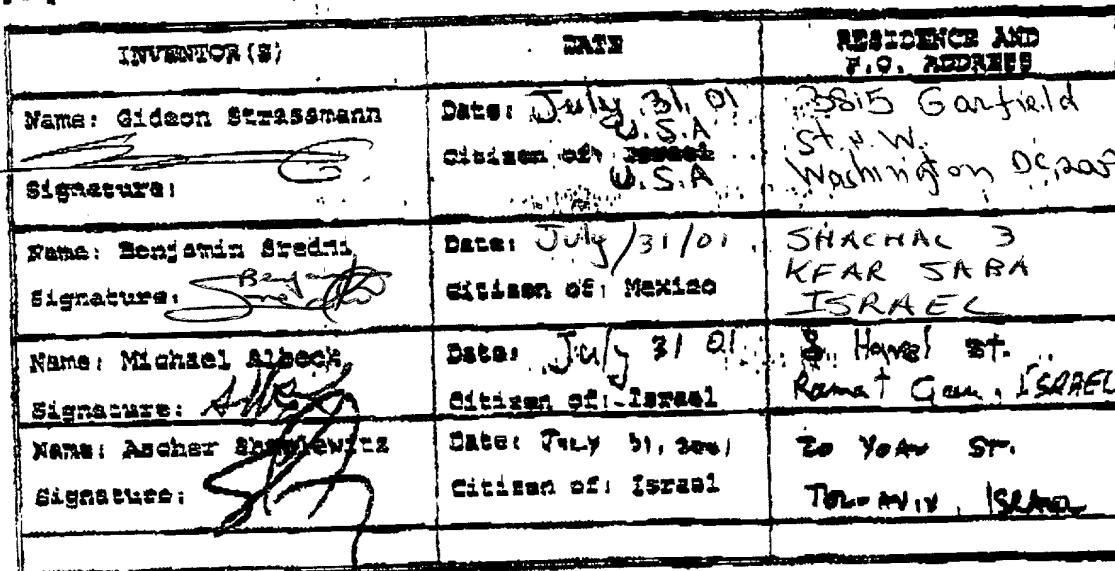 INVENTOR(S)
DATE
RESIDENCE AND
P.O. ADDRESS
Name: Gideon Strassmann
Signature:
Date: July 31, 01
U.S.A
Citizen of: Israel
U.S.A
3815 Garfield
St. N.W.
Washington DC,
Name: Benjamin Sredni
Signature:
Date: July/31/01
Citizen of: Mexico
SHACHAL 3
KFAR SABA
ISRAEL
Name: Michael Albeck
Signature:
Date: July 31 01
Citizen of: Israel
St.
Ramat Gan, ISRAEL
Name: Ascher Shmulewitz
Signature:
Date: July 31, 2001
Citizen of: Israel
20 YOAV ST.
TEL-AVIV, ISRAEL